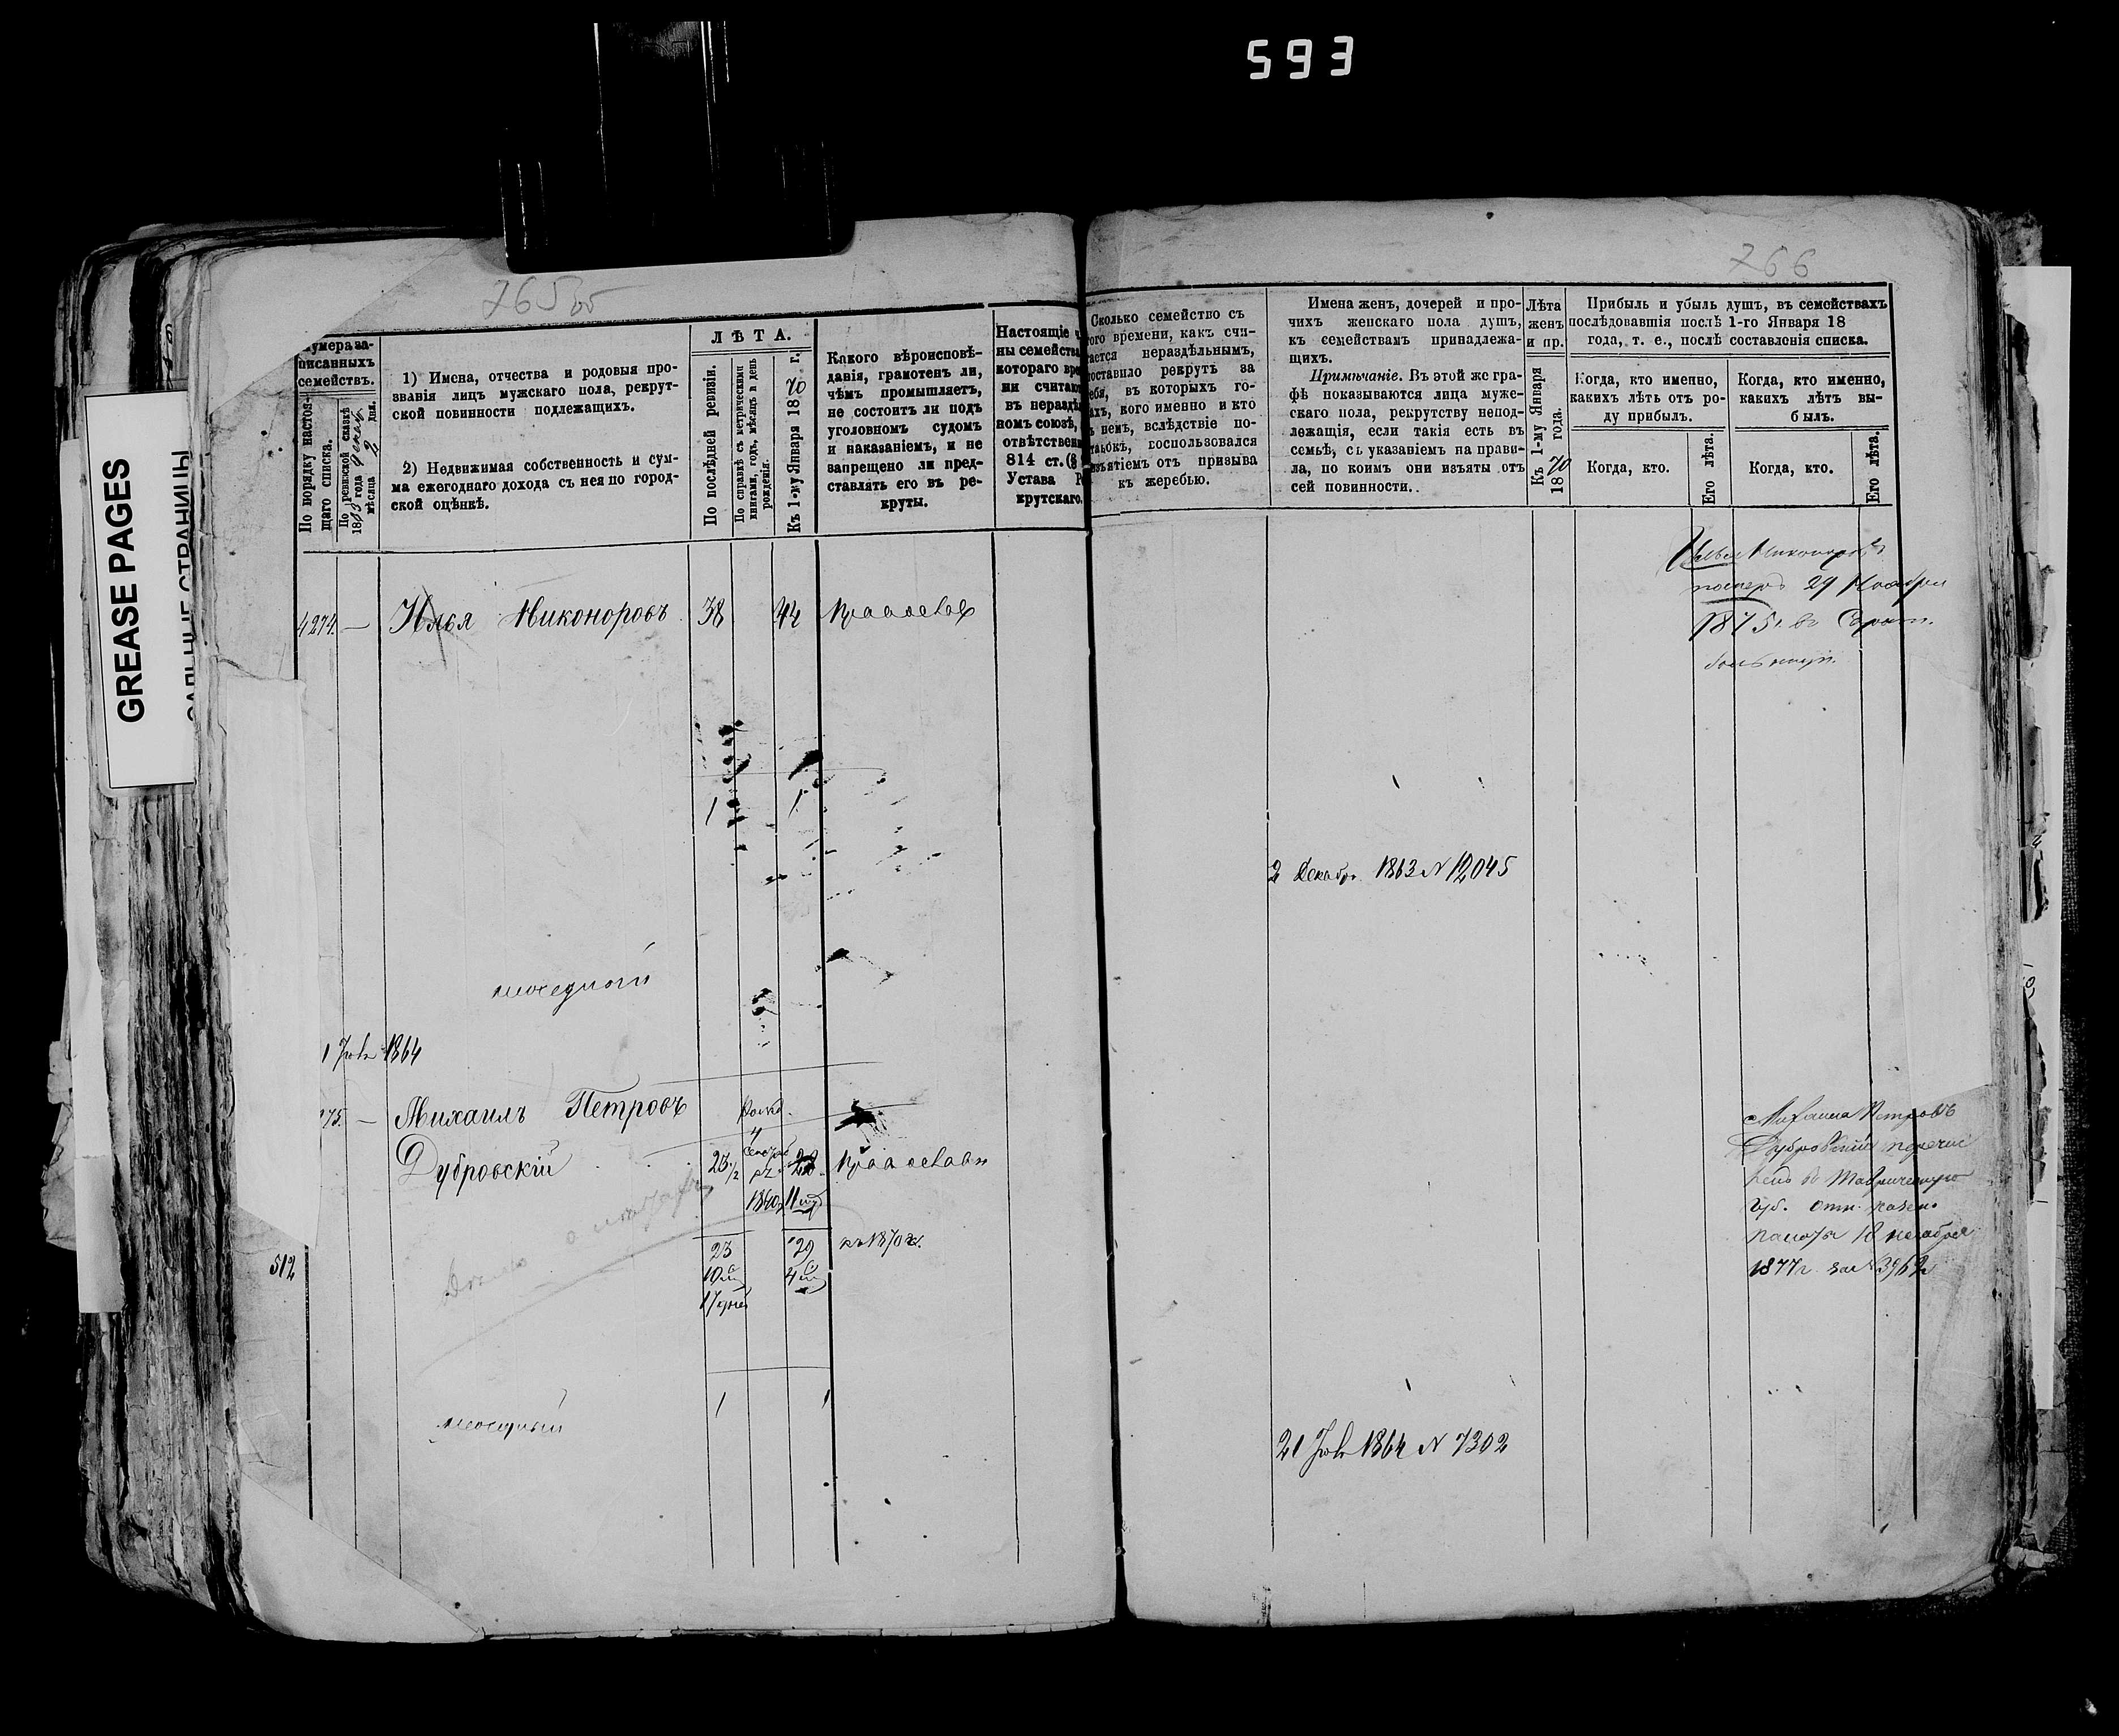 593
GREASE PAGES
765 об
766
Нумера за-
писанныхъ
семействъ.
По порядку настоя-
щаго списка.
По ревизской сказкѣ
1863 года Декаб.
мѣсяца 2 дня.
1) Имена, отчества и родовыя про-
званія лицъ мужскаго пола, рекрут-
ской повинности подлежащихъ.
2) Недвижимая собственность и сум-
ма ежегоднаго дохода съ нея по город-
ской оцѣнкѣ.
ЛѢТА.
По послѣдней ревизіи.
По справкѣ съ метрическими
книгами, годъ, мѣсяцъ и день
рожденія.
Къ 1-му Января 1870 г.
Какого вѣроисповѣ-
данія, грамотенъ ли,
чѣмъ промышляетъ,
не состоитъ ли подъ
уголовномъ судомъ
и наказаніемъ, и не
запрещено ли пред-
ставлять его въ ре-
круты.
Настоящіе ч
ны семейства
котораго вре
ни считаю
въ неразд
номъ союзѣ,
отвѣтствен
814 ст. (§
Устава Р
крутскаго.
Сколько семейство съ
того времени, какъ счи-
тается нераздѣльнымъ,
поставило рекрутъ за
себя, въ которыхъ го-
дахъ, кого именно и кто
въ немъ, вслѣдствіе по-
воспользовался
изъятіемъ отъ призыва
къ жеребью.
Имена женъ, дочерей и про-
чихъ женскаго пола душъ,
къ семействамъ принадлежа-
щихъ.
Примѣчаніе. Въ этой же гра-
фѣ показываются лица муже-
скаго пола, рекрутству непод-
лежащія, если такія есть въ
семьѣ, съ указаніемъ на прави-
ла, по коимъ они изъяты отъ
сей повинности..
Лѣта
женъ
и пр.
Къ 1-му Января
1870 года.
Прибыль и убыль душъ, въ семействахъ
послѣдовавшія послѣ 1-го Января 18
года, т. е., послѣ составленія списка.
Когда, кто именно,
какихъ лѣтъ отъ ро-
ду прибылъ.
Когда, кто именно,
какихъ лѣтъ вы-
былъ.
Когда, кто.
Его лѣта.
Когда, кто.
Его лѣта.
4274. — Илья Никоноровъ 38 44
Илья Никоноровъ
померъ 29 Ноября
1875 г. въ Сарат.
больницѣ.
1 1
2 Декабр. 1863 N 12045
1864
275. — Михаилъ Петровъ
Дубровскій 23 1/2
1840
23 29 къ 1870 г.
10 4
17 дней
512
Михаилъ Петровъ
Дубровскій перечис
ленъ въ Таврическую
губ. отн. казен.
палаты 10 декабря
1877 г. за № 3962
1 1
21 1864 N 7302